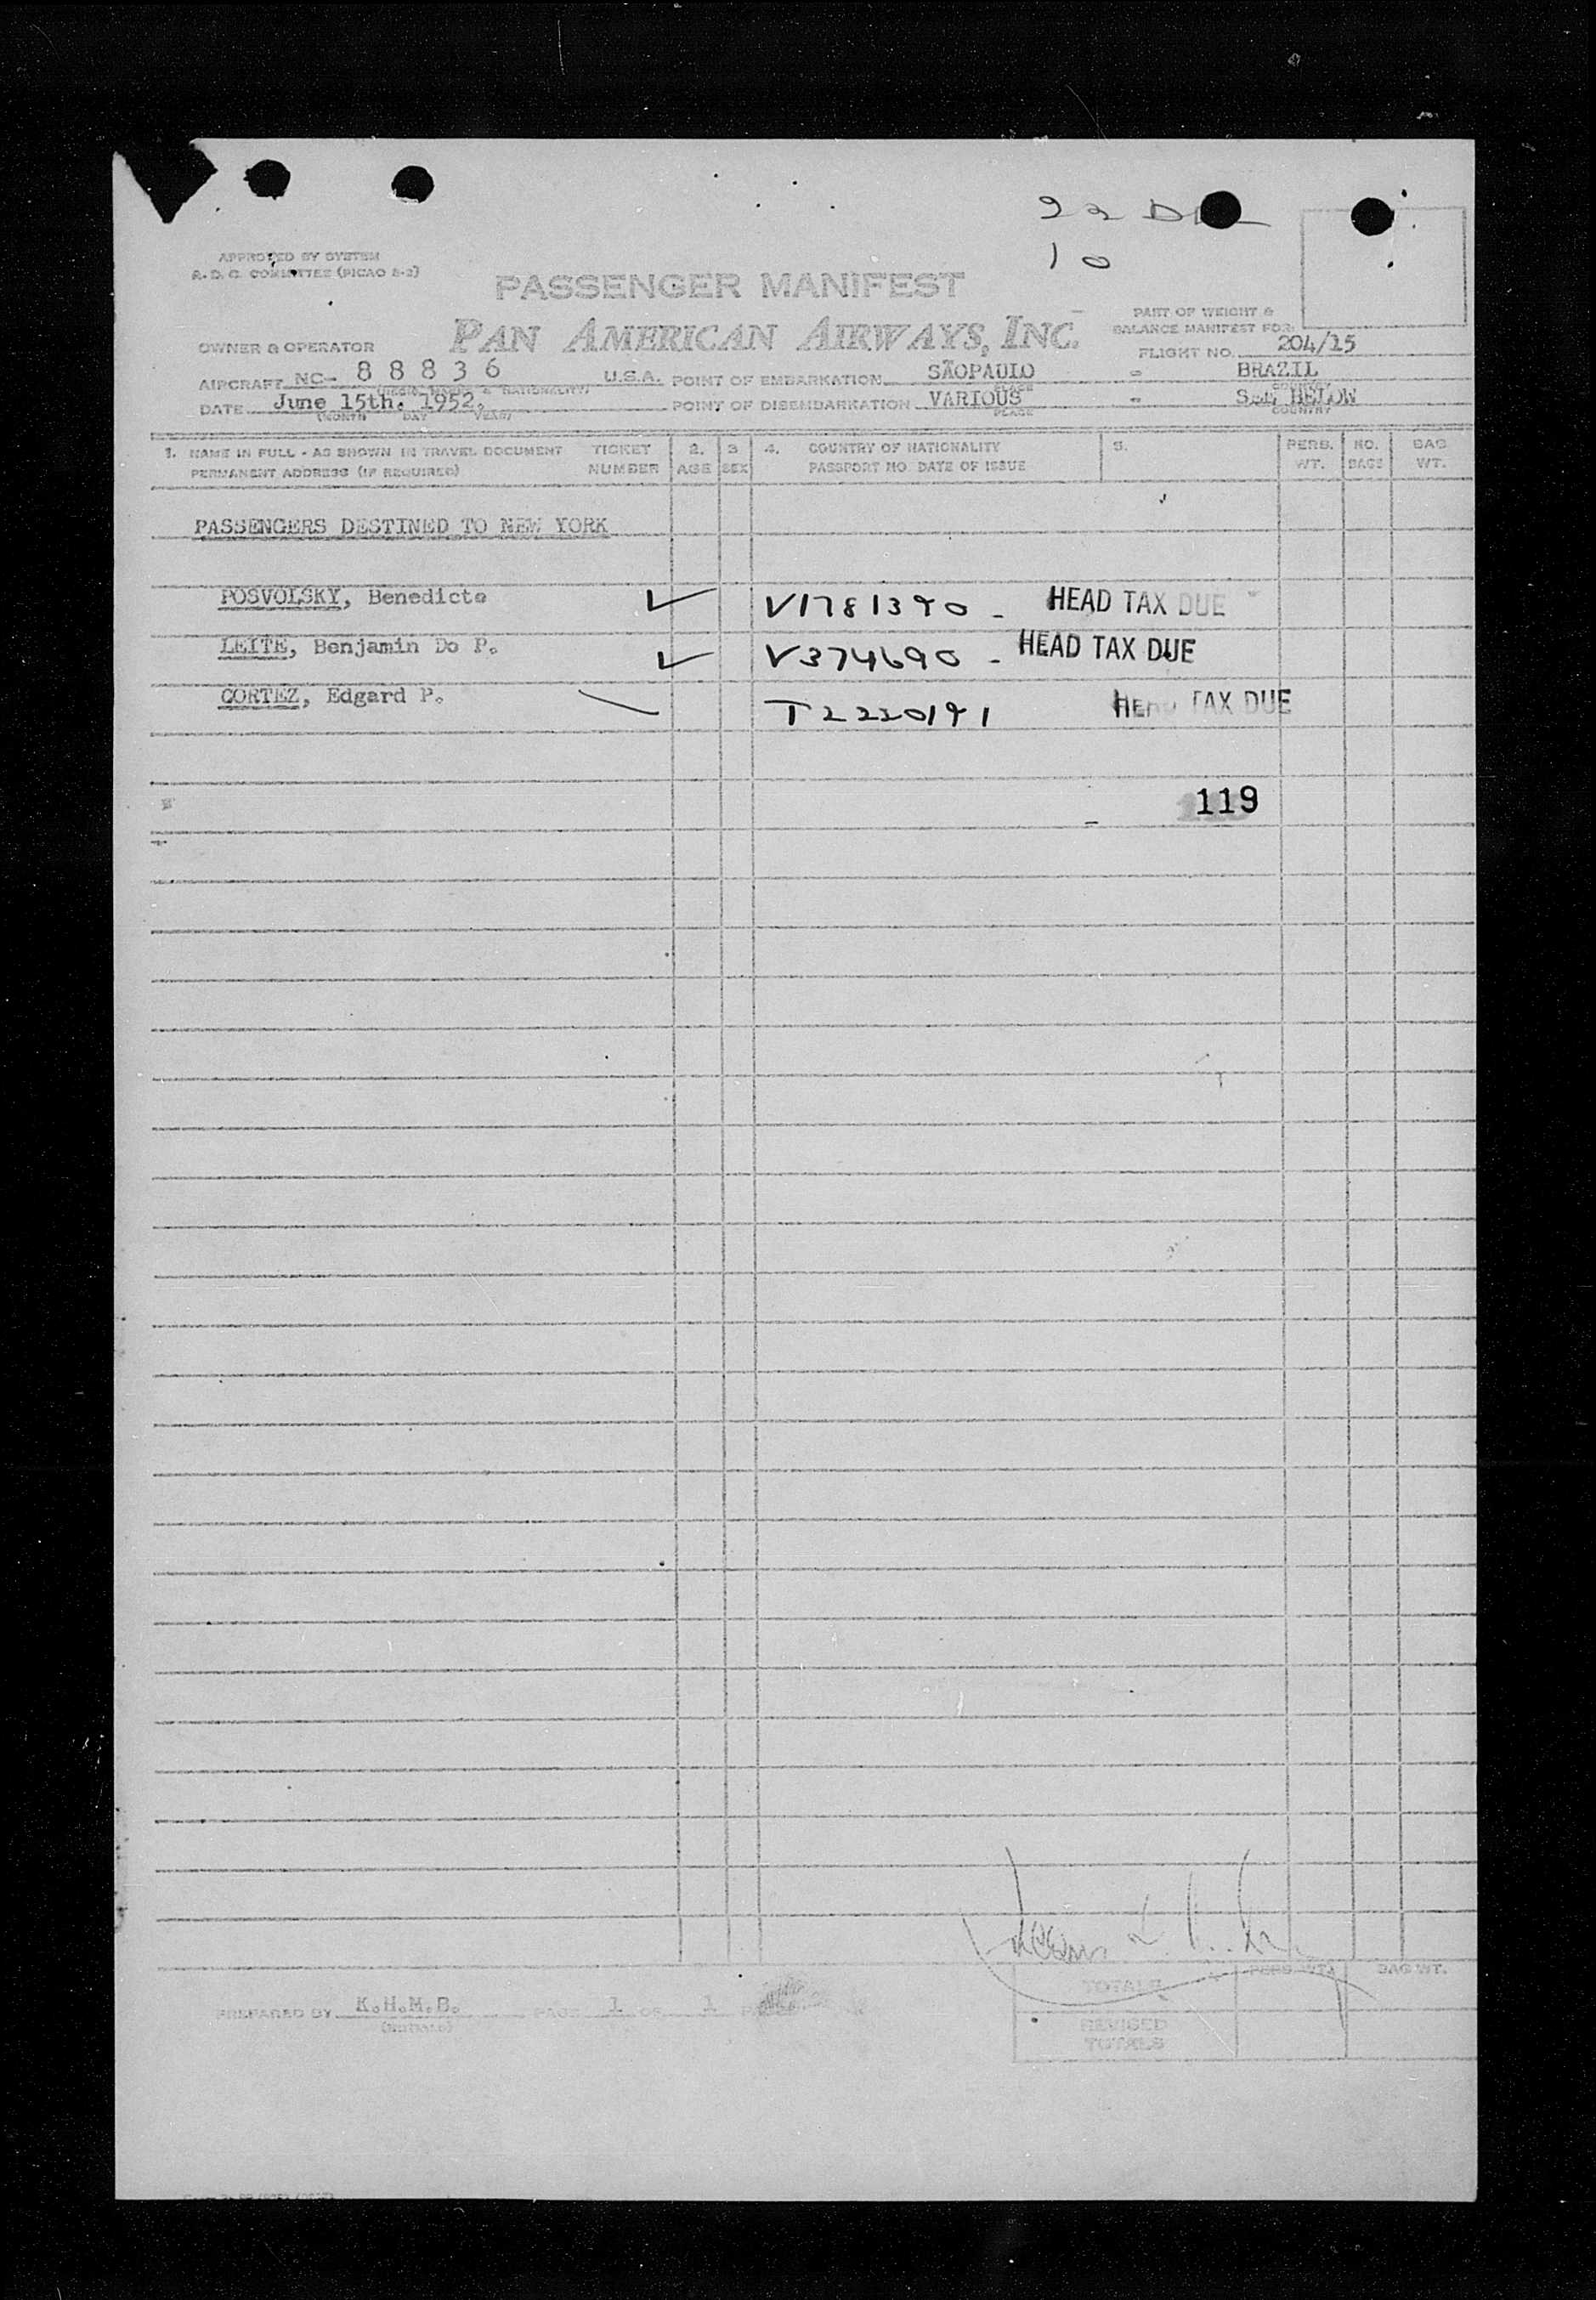 APPROVED BY SYSTEM
A. D. C. COMMITTEE (PICAO 8-2)
22
10
PASSENGER MANIFEST
PAN AMERICAN AIRWAYS, INC.
PART OF WEIGHT &
BALANCE MANIFEST FOR:
OWNER & OPERATOR
FLIGHT NO. 204/15
AIRCRAFT NC- 88836 U.S.A. POINT OF EMBARKATION SÃOPAULO - BRAZIL
PLACE COUNTRY
DATE June 15th. 1952. POINT OF DISEMBARKATION VARIOUS - SEE BELOW
(MONTH DAY YEAR) PLACE COUNTRY
1. NAME IN FULL - AS SHOWN IN TRAVEL DOCUMENT TICKET 2. 3 4. COUNTRY OF NATIONALITY 5. PERS. NO. BAG
PERMANENT ADDRESS (IF REQUIRED) NUMBER AGE SEX PASSPORT NO. DATE OF ISSUE WT. BAGS WT.
PASSENGERS DESTINED TO NEW YORK
POSVOLSKY, Benedicto V1781390 - HEAD TAX DUE
LEITE, Benjamin Do P. V374690 - HEAD TAX DUE
CORTEZ, Edgard P. T2220191 HEAD TAX DUE
119
TOTALS PERS. WT. BAG WT.
PREPARED BY K.H.M.B. PAGE 1 OF 1
REVISED
TOTALS